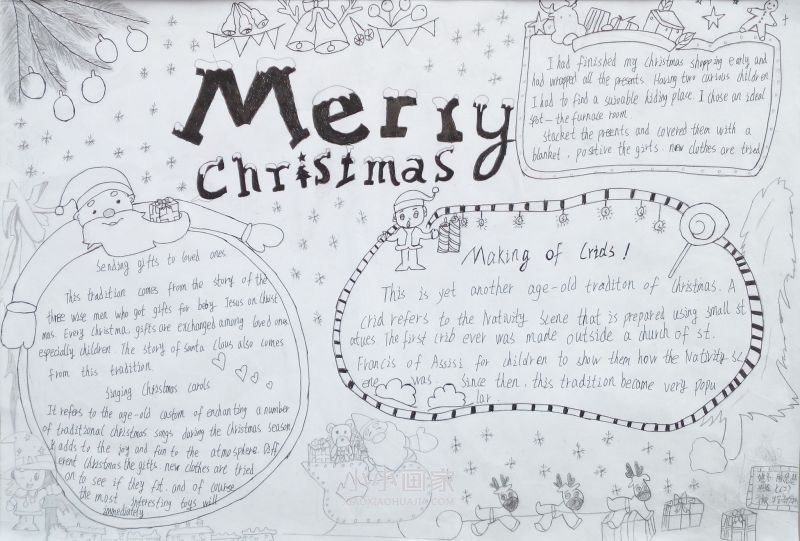 Merry
Christmas
I had finished my christmas shopping early and
had wrapped all the presents. Having two curious children
I had to find a suivable hiding place. I chose an ideal
spot — the furnace room.
stacket the presents and covered them with a
blanket, positive the girts. new clothes are tried
Sending gifts to loved ones.
This tradition comes from the story of the
three wise men who got gifts for baby. Jesus on Christ
mas. Every Christma, gifts are exchanged among loved ones
especially children. The story of santa Claus also comes
from this tradition.
Singing Christmas carols
It refers to the age-old custom of enchanting a number
of traditional christmas songs during the christmas season
It adds to the joy and fun to the atmosphere. Diff
erent Christmas the gifts. new clothes are tried
on to see if they fit. and of course
the most interesting toys will
immediately
Making of Crids!
This is yet another age-old traditon of Christmas. A
Crid refers to the Nativity Scene that is prepared using small st
atues. The first crib ever was made outside a church of st.
Francis of Assisi for children to show them how the Nativity sc
ene was Since then, this tradition became very popu
lar.
小小画家
XIAOXIAOHUAJIA.COM